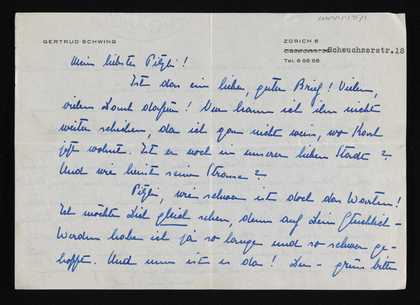 GERTRUD SCHWING
ZÜRICH 6
Scheuchzerstr. 18
Tel. 6 68 68
Mein liebster Pitzli!
Ist das ein lieber, guter Brief! Vielen,
vielen Dank dafür! Nun kann ich ihn nicht
weiter schicken, da ich gar nicht weiss, wo Karl
jetzt wohnt. Ist er noch in unserer lieben Stadt?
Und wie heisst seine Strasse?
Pitzli, wie schwer ist doch das Warten!
Ich möchte Dich gleich sehen, denn auf Dein Glücklich-
Werden habe ich ja so lange und so schwer ge-
hofft. Und nun ist es da! bitte